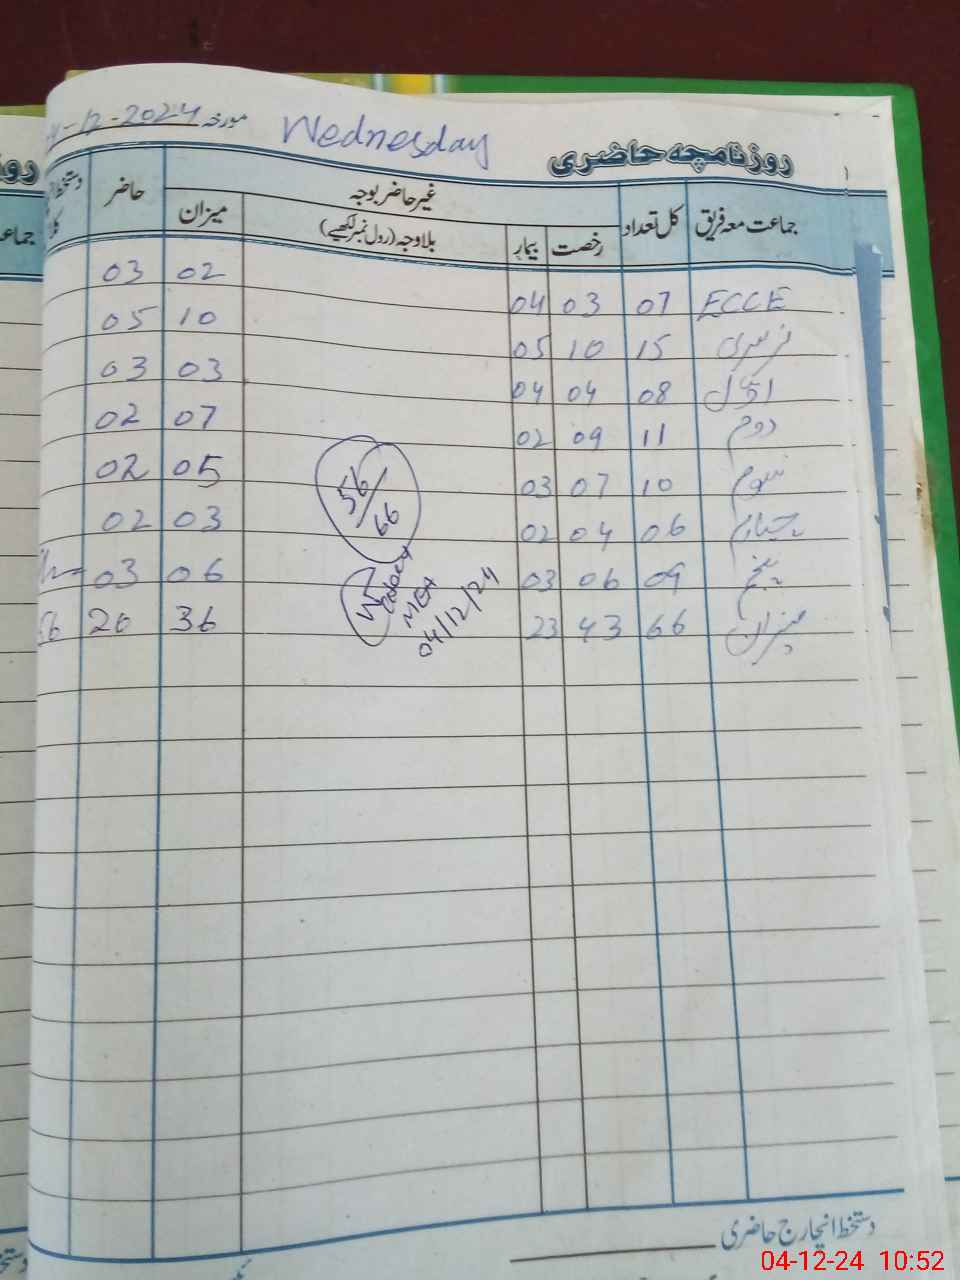 روزنامچہ حاضری Wednesday مورخہ 4-12-2024
جماعت معہ فریق کل تعداد غیر حاضر بوجہ حاضر
رخصت بیمار بلاوجہ (رول نمبر لکھیے) میزان
ECCE 07 03 04 02 03
نرسری 15 10 05 10 05
اوّل 08 04 04 03 03
دوم 11 09 02 07 02
سوم 10 07 03 05 02
چہارم 06 04 02 03 02
پنجم 09 06 03 06 03
میزان 66 43 23 36 20
56/66
MEA
04/12/24
دستخط انچارج حاضری
04-12-24 10:52